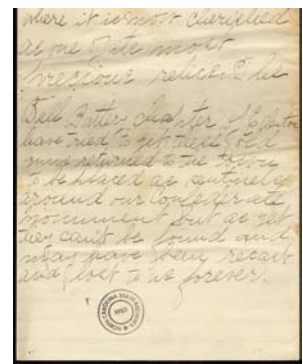 where it is most cherished
as one of its most
precious relics. The
Bell Battery Chapter of Edenton
have tried to get these old
guns returned to the town
to be placed as sentinels
around our Confederate
monument but as yet
they can't be found and
may have been recast
and lost to us forever.
NORTH CAROLINA STATE ARCHIVES